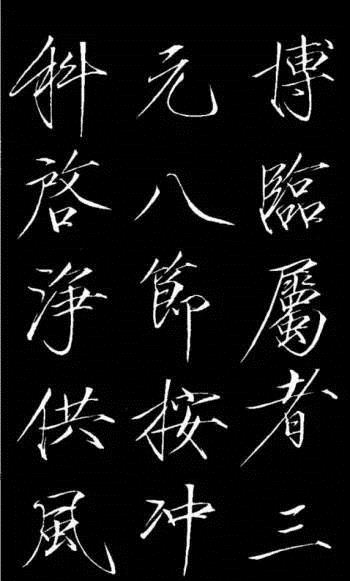 博臨屬者三
元八節按冲
科啓浄供風